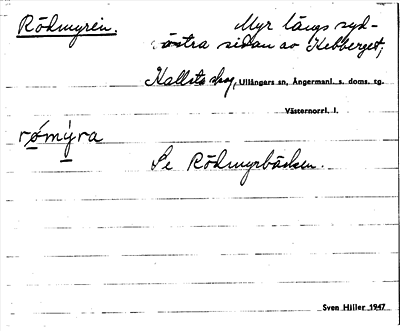 Rödmyren.
Myr längs syd-
östra sidan av Kebberget,
Kallsta skog, Ullångers sn, Ångermanl. s. doms. tg.
Västernorrl. l.
rømýra
Se Rödmyrbäcken.
Sven Hiller 1947